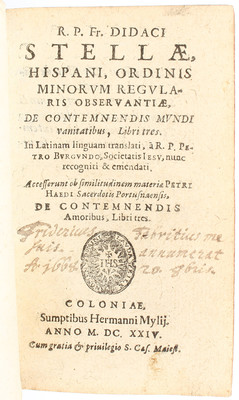 R. P. Fr. DIDACI
STELLÆ,
HISPANI, ORDINIS
MINORVM REGVLA-
RIS OBSERVANTIÆ,
DE CONTEMNENDIS MVNDI
vanitatibus, Libri tres.
In Latinam linguam translati, à R. P. PE-
TRO BVRGVNDO, Societatis IESV, nunc
recogniti & emendati.
Accesserunt ob similitudinem materiæ PETRI
HÆDI Sacerdotis Portusnaensis,
DE CONTEMNENDIS
Amoribus, Libri tres.
Fridericus Fabritius me
suis annumerat
Aº 1668 20
COLONIAE,
Sumptibus Hermanni Mylij.
ANNO M. DC. XXIV.
Cum gratia & priuilegio S. Cæs. Maiest.